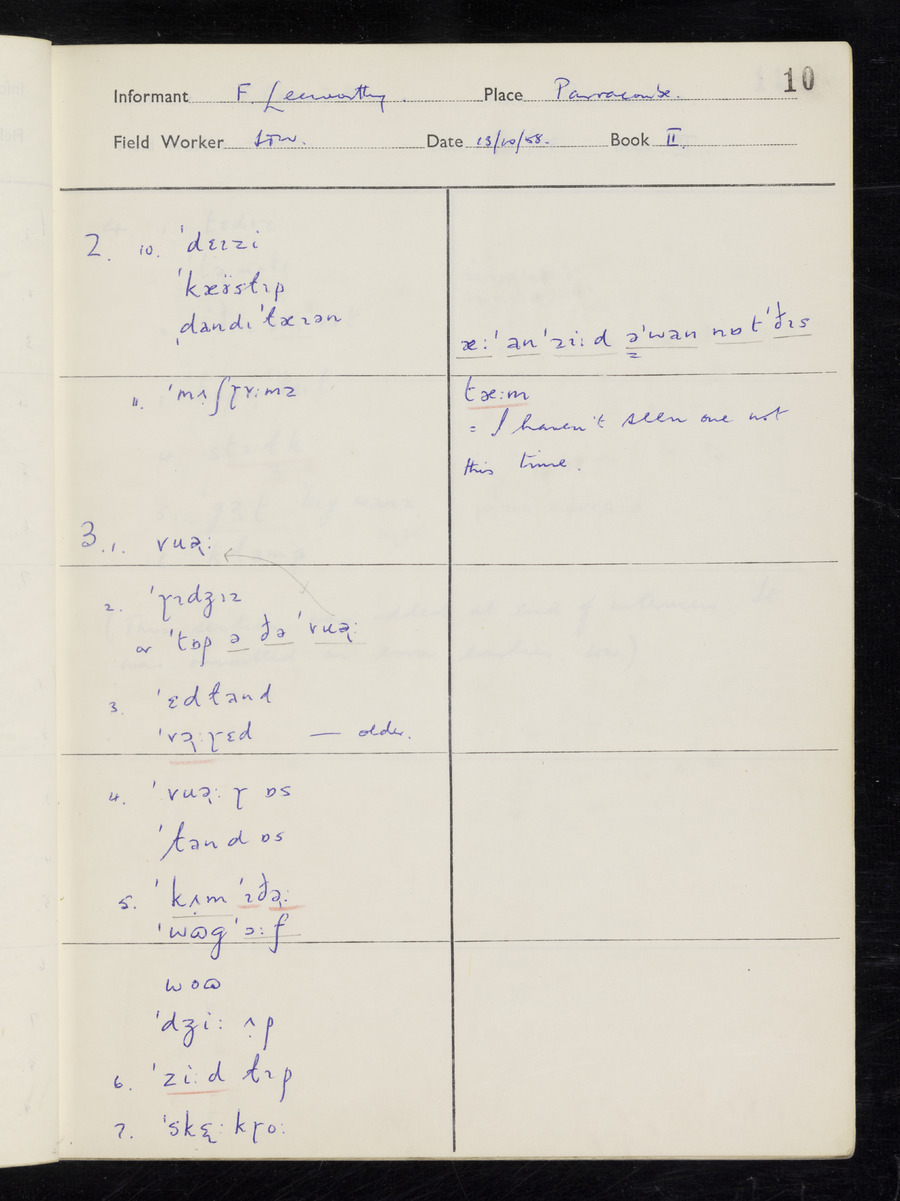 10
Informant F. Leeworthy. Place Parracombe.
Field Worker Date 13/10/58. Book II.
2. 10. ˈdɛɪzi
ˈkæʊ̈slɪp
ˌdandɪˈlæɪən
æ:ˈ anˈzi:d əˈwan nɒtˈðɪs
11. ˈmʌʃɽɤ:mz
læ:m
= I haven't seen one not
this time.
3. 1. vuə̢:
2. ˈɽɪdʒɪz
or ˈtɒp ə ðə ˈvuə̢:
3. ˈɛdlənd
ˈvə̢:ɽɛd — older.
4. ˈvuə̢: ɽ ɒs
ˈland ɒs
5. ˈkʌm ˈɪðə̢:
ˈwʊg ˈɔ:f
woʊ
ˈdʒi: ʌp
6. ˈzi:d lɪp
7. ˈskɛ̢: kɽo: